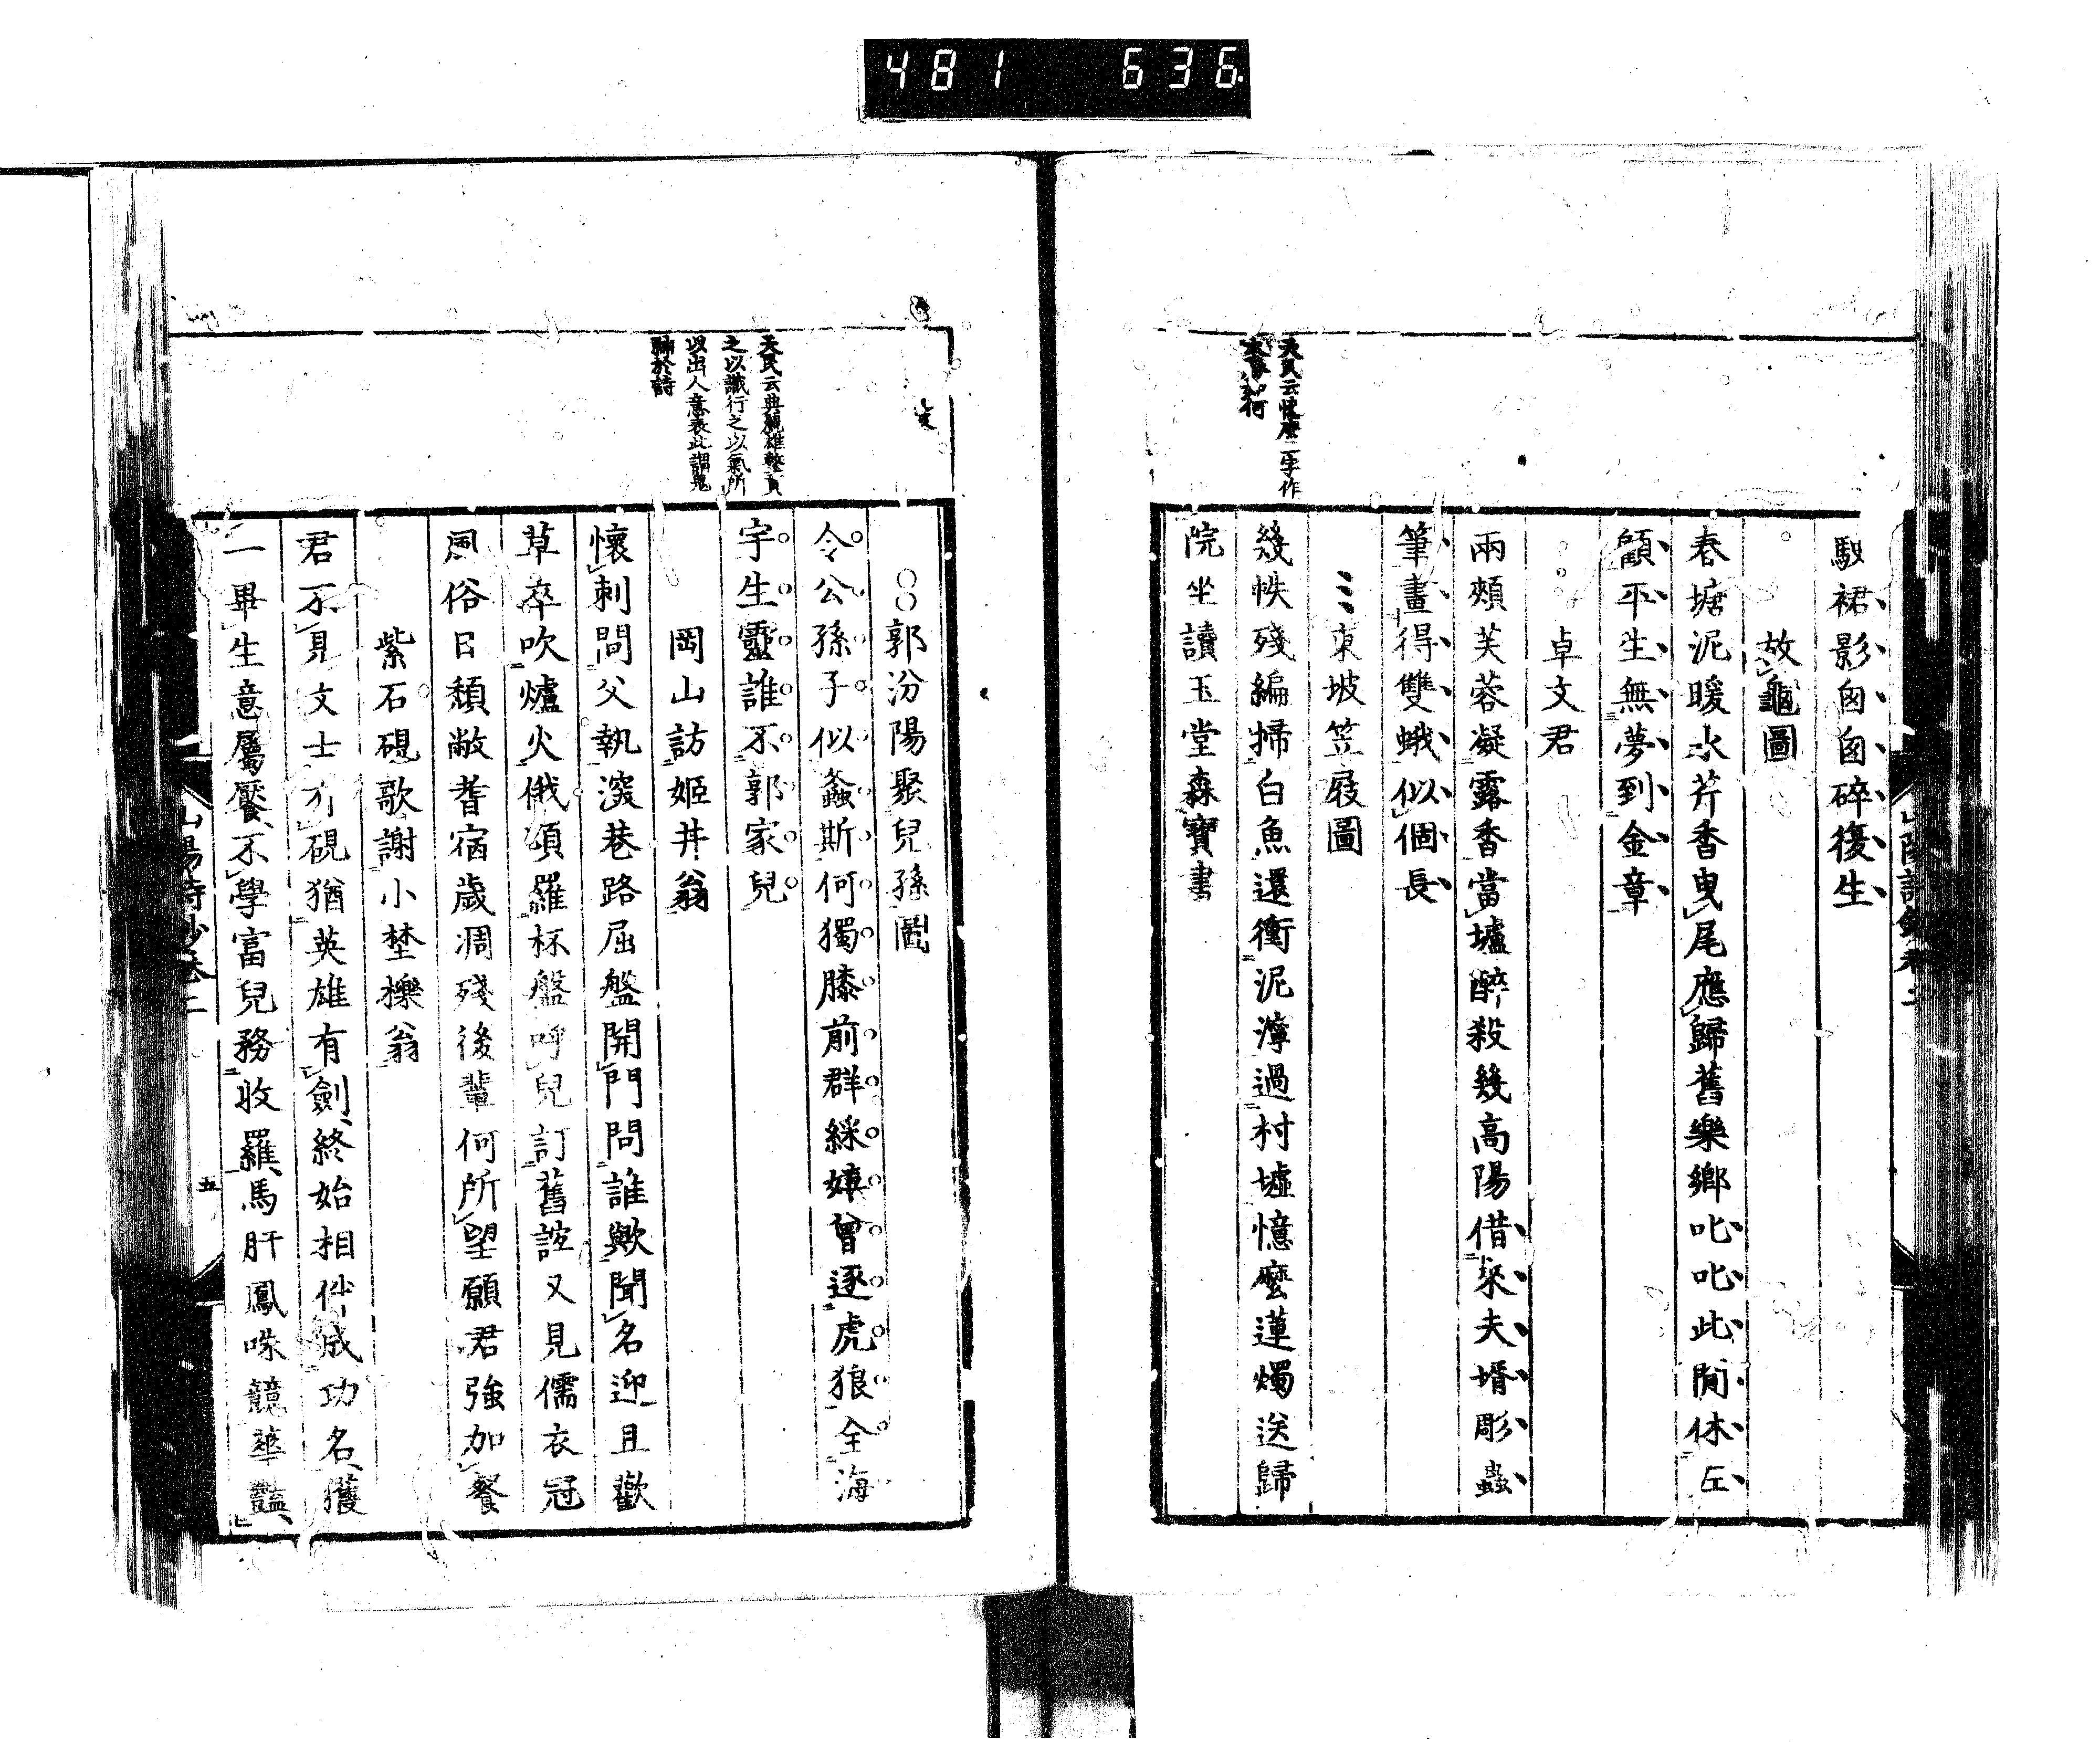 481 636
天民云憶麼二字作
靨裙影囪囪碎復生
放龜圖
春塘泥暖水芹香曳尾應歸舊樂鄉叱叱此閒休左
顧平生無夢到金章
卓文君
兩頰芙蓉凝露香當壚醉殺幾高陽借來夫壻彫蟲
筆畫得雙蛾似個長
東坡笠屐圖
幾帙殘編掃白魚還衝泥濘過村墟憶麼蓮燭送歸
院坐讀玉堂森寶書
天民云典麗雄整貢
之以識行之以氣所
以出人意表此謂鬼
於詩
郭汾陽聚兒孫圖
令公孫子似螽斯何獨膝前群綵嬉曾逐虎狼全海
宇生靈誰不郭家兒
岡山訪姬井翁
懷刺問父執深巷路屈盤開門問誰歟聞名迎且歡
草卒吹爐火俄頃羅杯盤呼兒訂舊誼又見儒衣冠
風俗日頹敝耆宿歲凋殘後輩何所望願君強加餐
紫石硯歌謝小埜櫟翁
君不見文士有硯猶英雄有劍終始相伴成功名獲
一畢生意屬饜不學富兒務收羅馬肝鳳咮競華豔
山陽詩鈔卷二
五